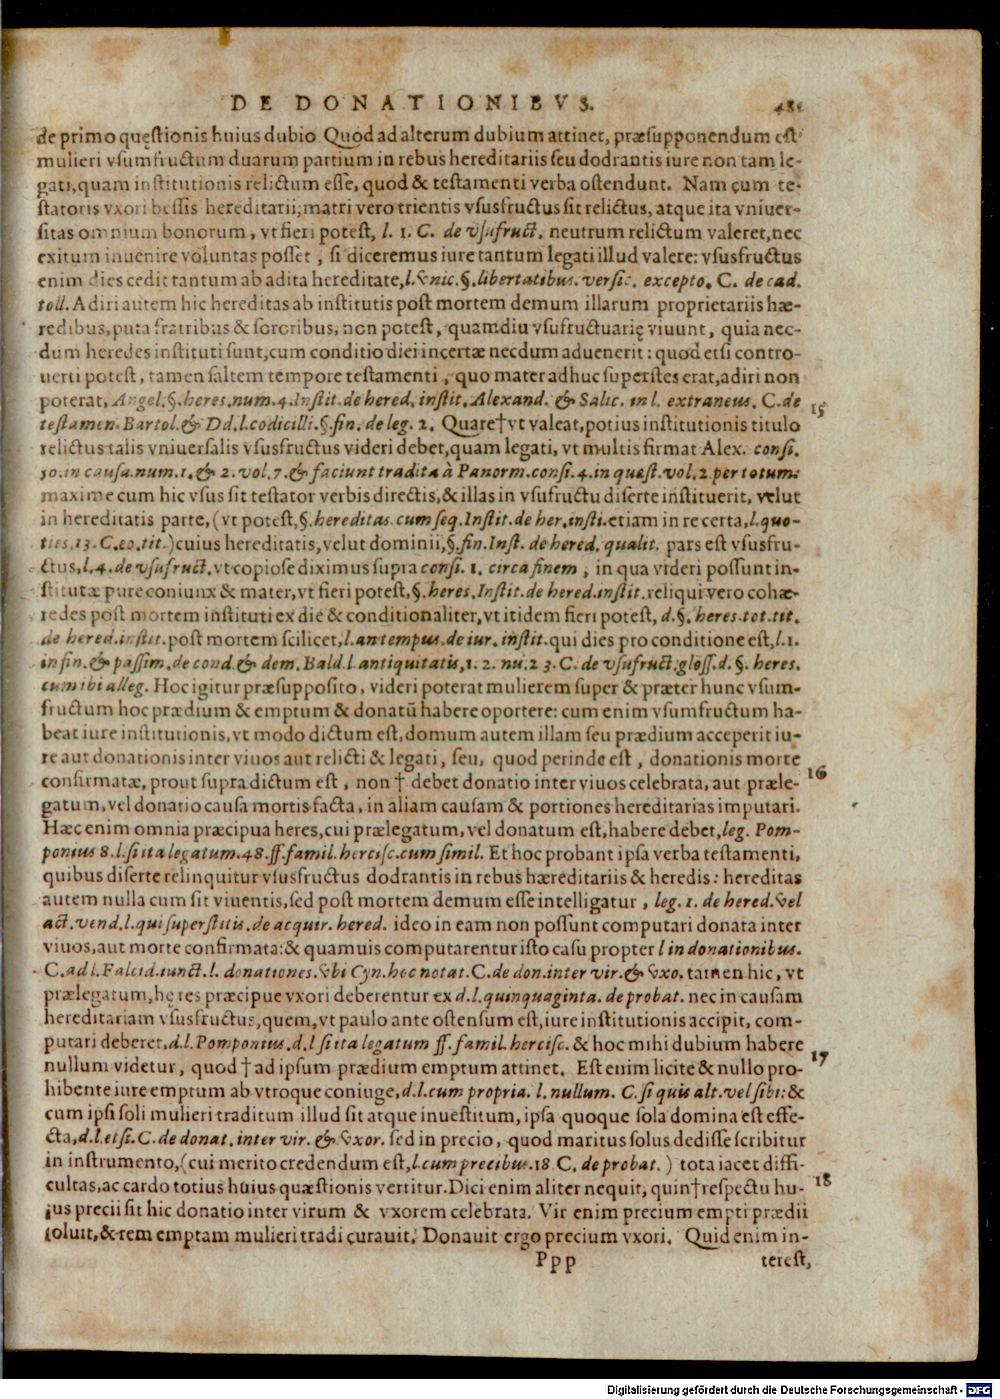 DE DONATIONIBVS. 481
de primo quęstionis huius dubio Quod ad alterum dubium attinet, præsupponendum est
mulieri vsumfructum duarum partium in rebus hereditariis seu dodrantis iure non tam le-
gati, quam institutionis relictum esse, quod & testamenti verba ostendunt. Nam cum te-
statoris vxori bessis hereditarii; matri vero trientis vsusfructus sit relictus, atque ita vniuer-
sitas omnium bonorum, vt fieri potest, l. 1. C. de vsufruct. neutrum relictum valeret, nec
exitum inuenire voluntas posset, si diceremus iure tantum legati illud valere: vsusfructus
enim dies cedit tantum ab adita hereditate, l. vnic. §. libertatibus. versic. excepto. C. de cad.
toll. Adiri autem hic hereditas ab institutis post mortem demum illarum proprietariis hæ-
redibus, puta fratribus & sororibus, non potest, quamdiu vsufructuarię viuunt, quia nec-
dum heredes instituti sunt, cum conditio diei incertæ necdum aduenerit: quod etsi contro-
uerti potest, tamen saltem tempore testamenti, quo mater adhuc superstes erat, adiri non
poterat, Angel. §. heres. num. 4. Instit. de hered. instit. Alexand. & Salic. in l. extraneus. C. de
testamen. Bartol. & Dd. l. codicilli. §. fin. de leg. 2. Quare† vt valeat, potius institutionis titulo 15
relictus talis vniuersalis vsusfructus videri debet, quam legati, vt multis firmat Alex. consi.
30. in causa. num. 1. & 2. vol. 7. & faciunt tradita à Panorm. consi. 4. in quæst. vol. 2. per totum:
maxime cum hic vsus sit testator verbis directis, & illas in vsufructu diserte instituerit, velut
in hereditatis parte, (vt potest, §. hereditas. cum seq. Instit. de her. insti. etiam in re certa, l. quo-
ties. 13. C. eo. tit.) cuius hereditatis, velut dominii, §. fin. Inst. de hered. qualit. pars est vsusfru-
ctus, l. 4. de vsufruct. vt copiose diximus supra consi. 1. circa finem, in qua videri possunt in-
stitutæ pure coniunx & mater, vt fieri potest, §. heres. Instit. de hered. instit. reliqui vero cohæ-
redes post mortem instituti ex die & conditionaliter, vt itidem fieri potest, d. §. heres. tot. tit.
de hered. instit. post mortem scilicet, l. an tempus. de iur. instit. qui dies pro conditione est, l. 1.
in fin. & passim. de cond. & dem. Bald. l. antiquitatis, 1. 2. nu. 23. C. de vsufruct. gloss. d. §. heres.
cum ibi alleg. Hoc igitur præsupposito, videri poterat mulierem super & præter hunc vsum-
fructum hoc prædium & emptum & donatũ habere oportere: cum enim vsumfructum ha-
beat iure institutionis, vt modo dictum est, domum autem illam seu prædium acceperit iu-
re aut donationis inter viuos aut relicti & legati, seu, quod perinde est, donationis morte
confirmatæ, prout supra dictum est, non † debet donatio inter viuos celebrata, aut præle- 16
gatum, vel donatio causa mortis facta, in aliam causam & portiones hereditarias imputari.
Hæc enim omnia præcipua heres, cui prælegatum, vel donatum est, habere debet, leg. Pom-
ponius 8. l. si ita legatum. 48. ff. famil. hercisc. cum simil. Et hoc probant ipsa verba testamenti,
quibus diserte relinquitur vsusfructus dodrantis in rebus hæreditariis & heredis: hereditas
autem nulla cum sit viuentis, sed post mortem demum esse intelligatur, leg. 1. de hered. vel
act. vend. l. qui superstitis. de acquir. hered. ideo in eam non possunt computari donata inter
viuos, aut morte confirmata: & quamuis computarentur isto casu propter l in donationibus.
C. ad l. Falcid. iunct. l. donationes. vbi Cyn. hoc notat. C. de don. inter vir. & vxo. tamen hic, vt
prælegatum, hęres præcipue vxori deberentur ex d. l. quinquaginta. de probat. nec in causam
hereditariam vsusfructus, quem, vt paulo ante ostensum est, iure institutionis accipit, com-
putari deberet, d. l. Pomponius. d. l si ita legatum ff. famil. hercisc. & hoc mihi dubium habere
nullum videtur, quod † ad ipsum prædium emptum attinet. Est enim licite & nullo pro- 17
hibente iure emptum ab vtroque coniuge, d. l. cum propria. l. nullum. C. si quis alt. vel sibi: &
cum ipsi soli mulieri traditum illud sit atque inuestitum, ipsa quoque sola domina est effe-
cta, d. l. etsi. C. de donat. inter vir. & vxor. sed in precio, quod maritus solus dedisse scribitur
in instrumento, (cui merito credendum est, l. cum precibus. 18 C. de probat.) tota iacet diffi-
cultas, ac cardo totius huius quæstionis vertitur. Dici enim aliter nequit, quin† respectu hu- 18
ius precii sit hic donatio inter virum & vxorem celebrata. Vir enim precium empti prædii
soluit, & rem emptam mulieri tradi curauit. Donauit ergo precium vxori. Quid enim in-
Ppp terest,
Digitalisierung gefördert durch die Deutsche Forschungsgemeinschaft - DFG